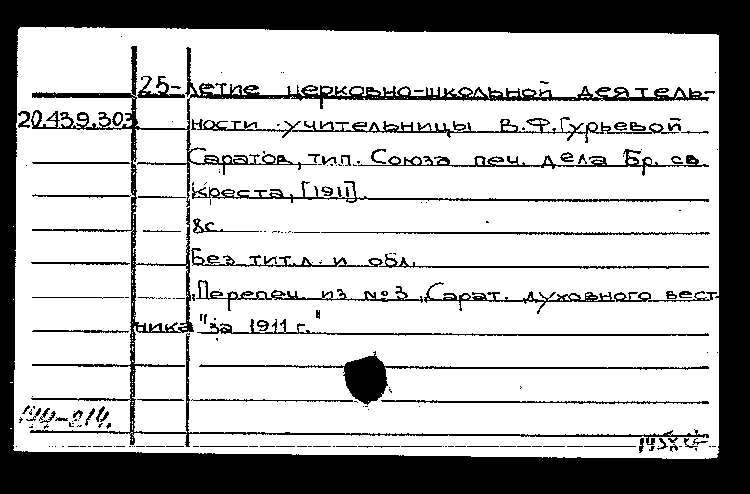 25-летие церковно-школьной деятель-
20.439.303 ности учительницы В.Ф.Гурьевой
Саратов, тип. Союза печ. дела Бр. св.
Креста, [1911].
8с.
Без тит.л. и обл.
„Перепеч. из №3 „Сарат. духовного вест-
ника "за 1911 г."
144-214.